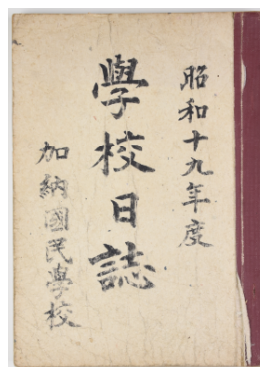 昭和十九年度
學校日誌
加納國民學校